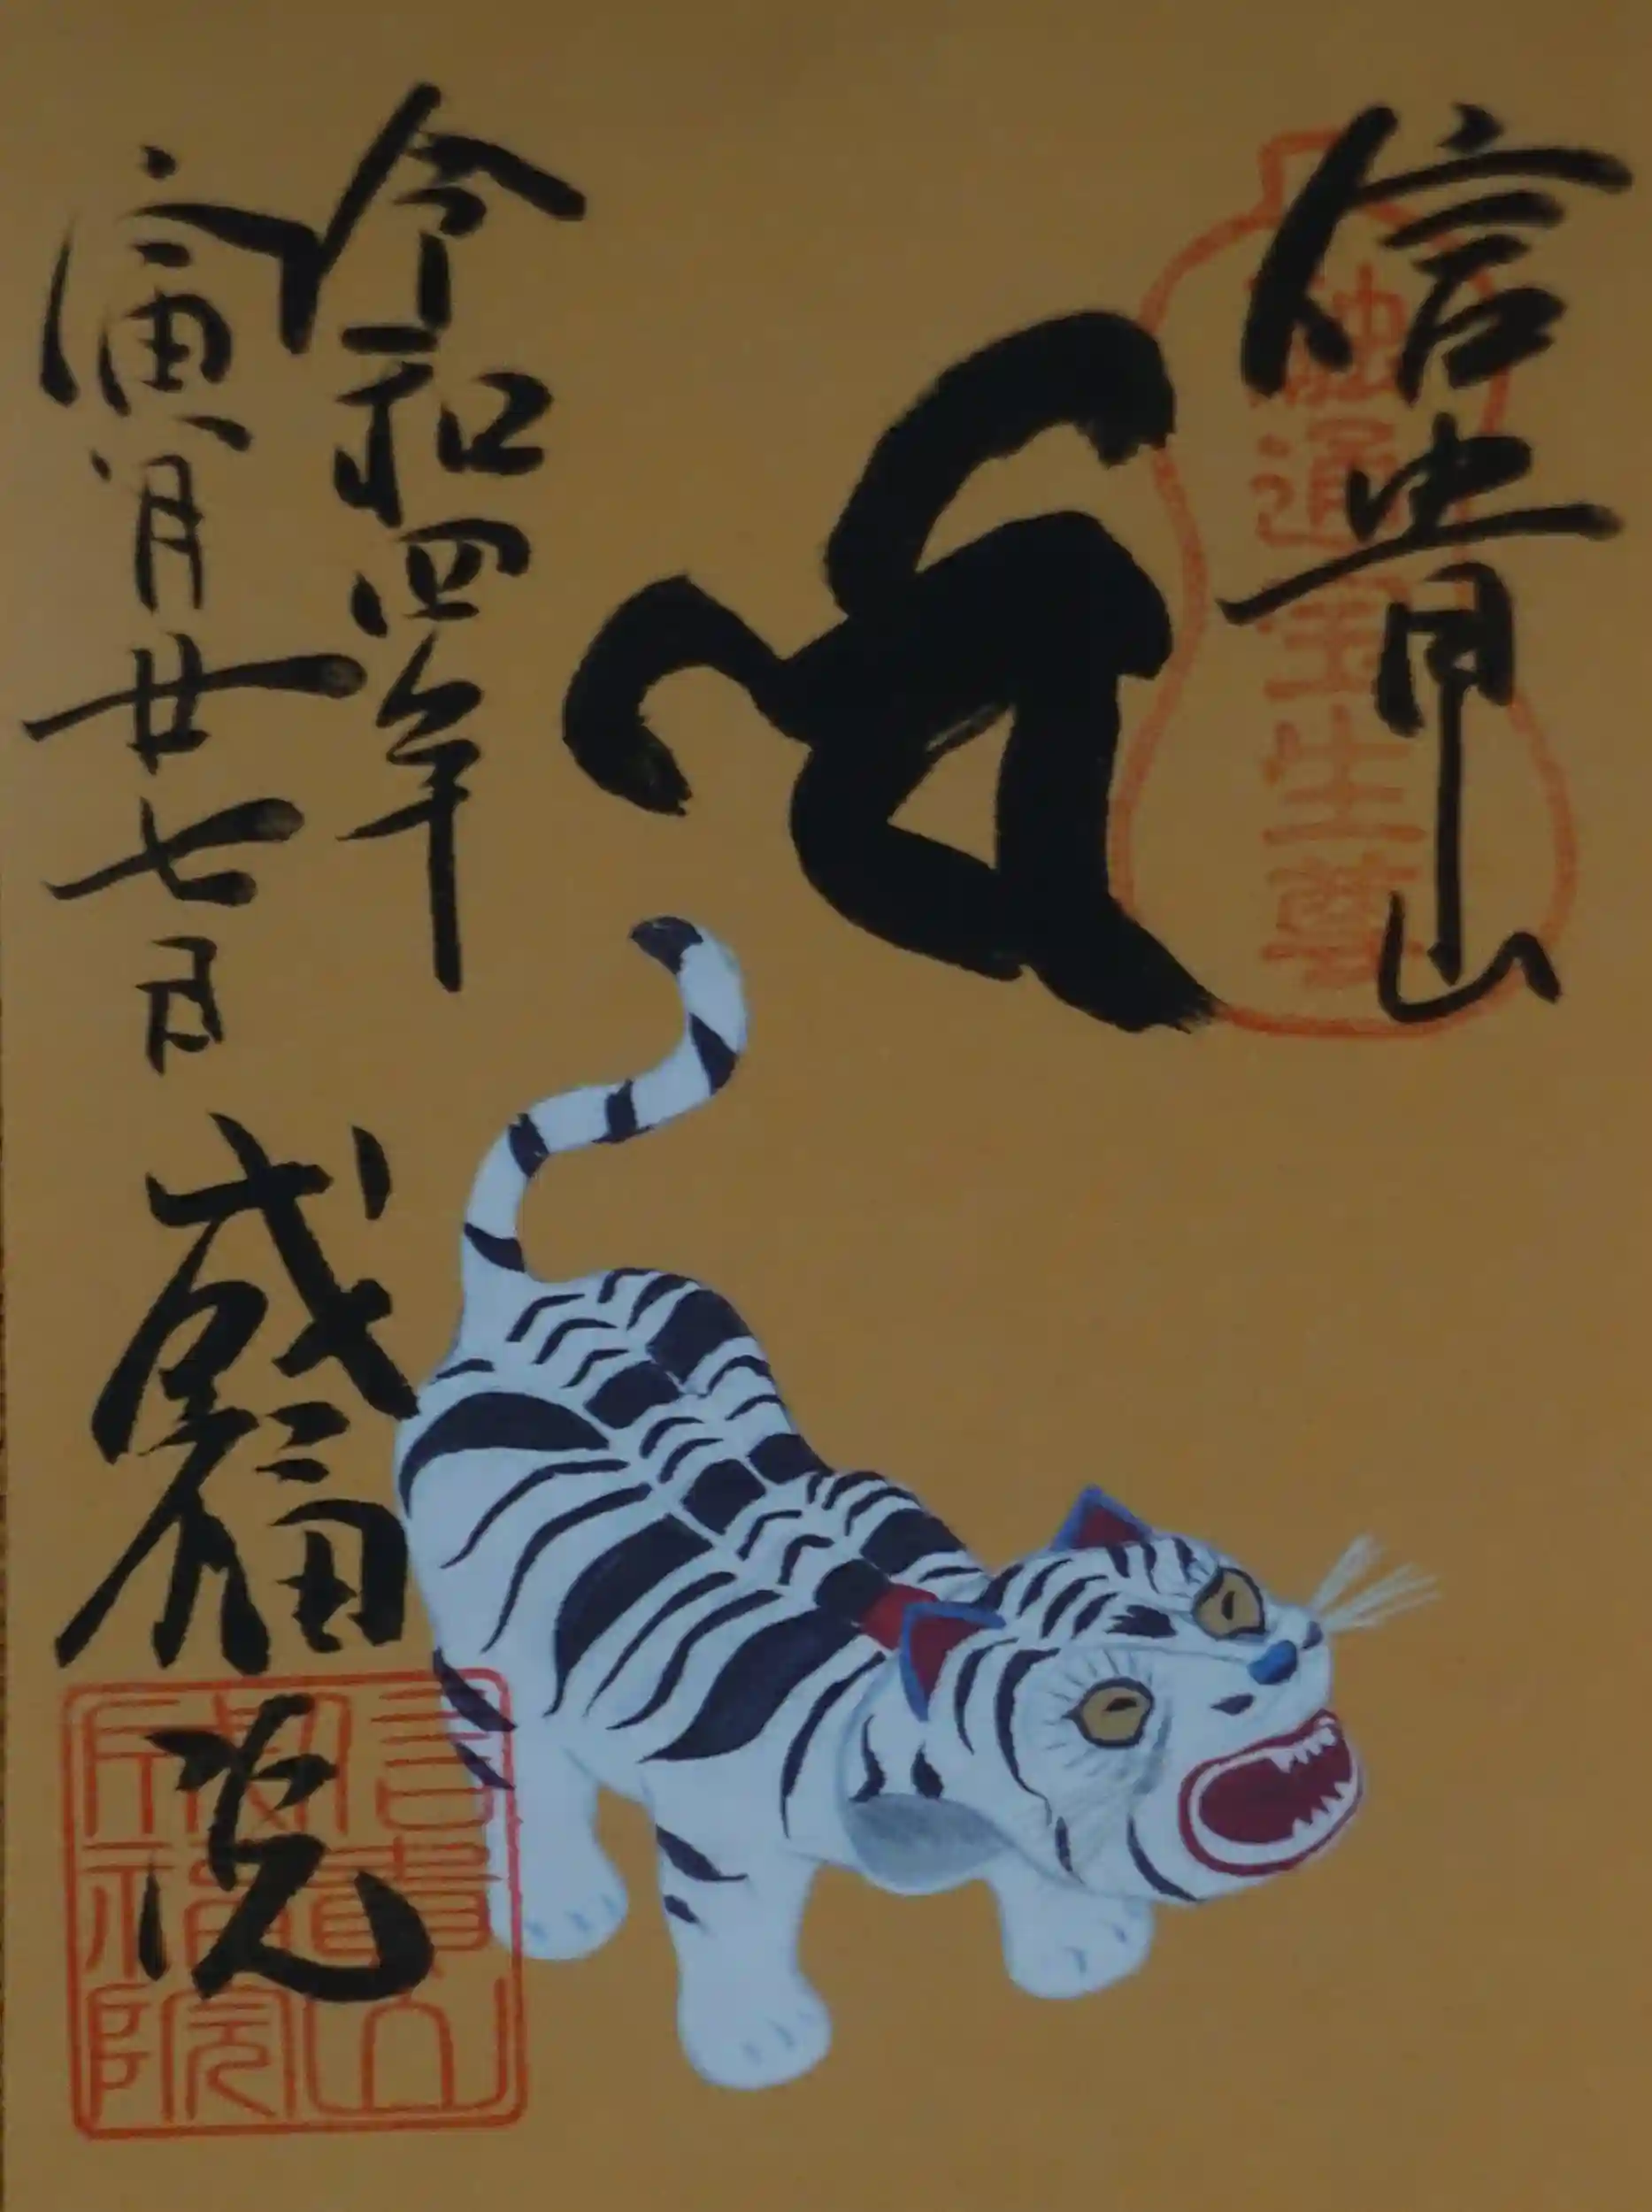 信貴山
融通宝生尊
令和四年
寅月廿七日
成福院
信貴山
成福院